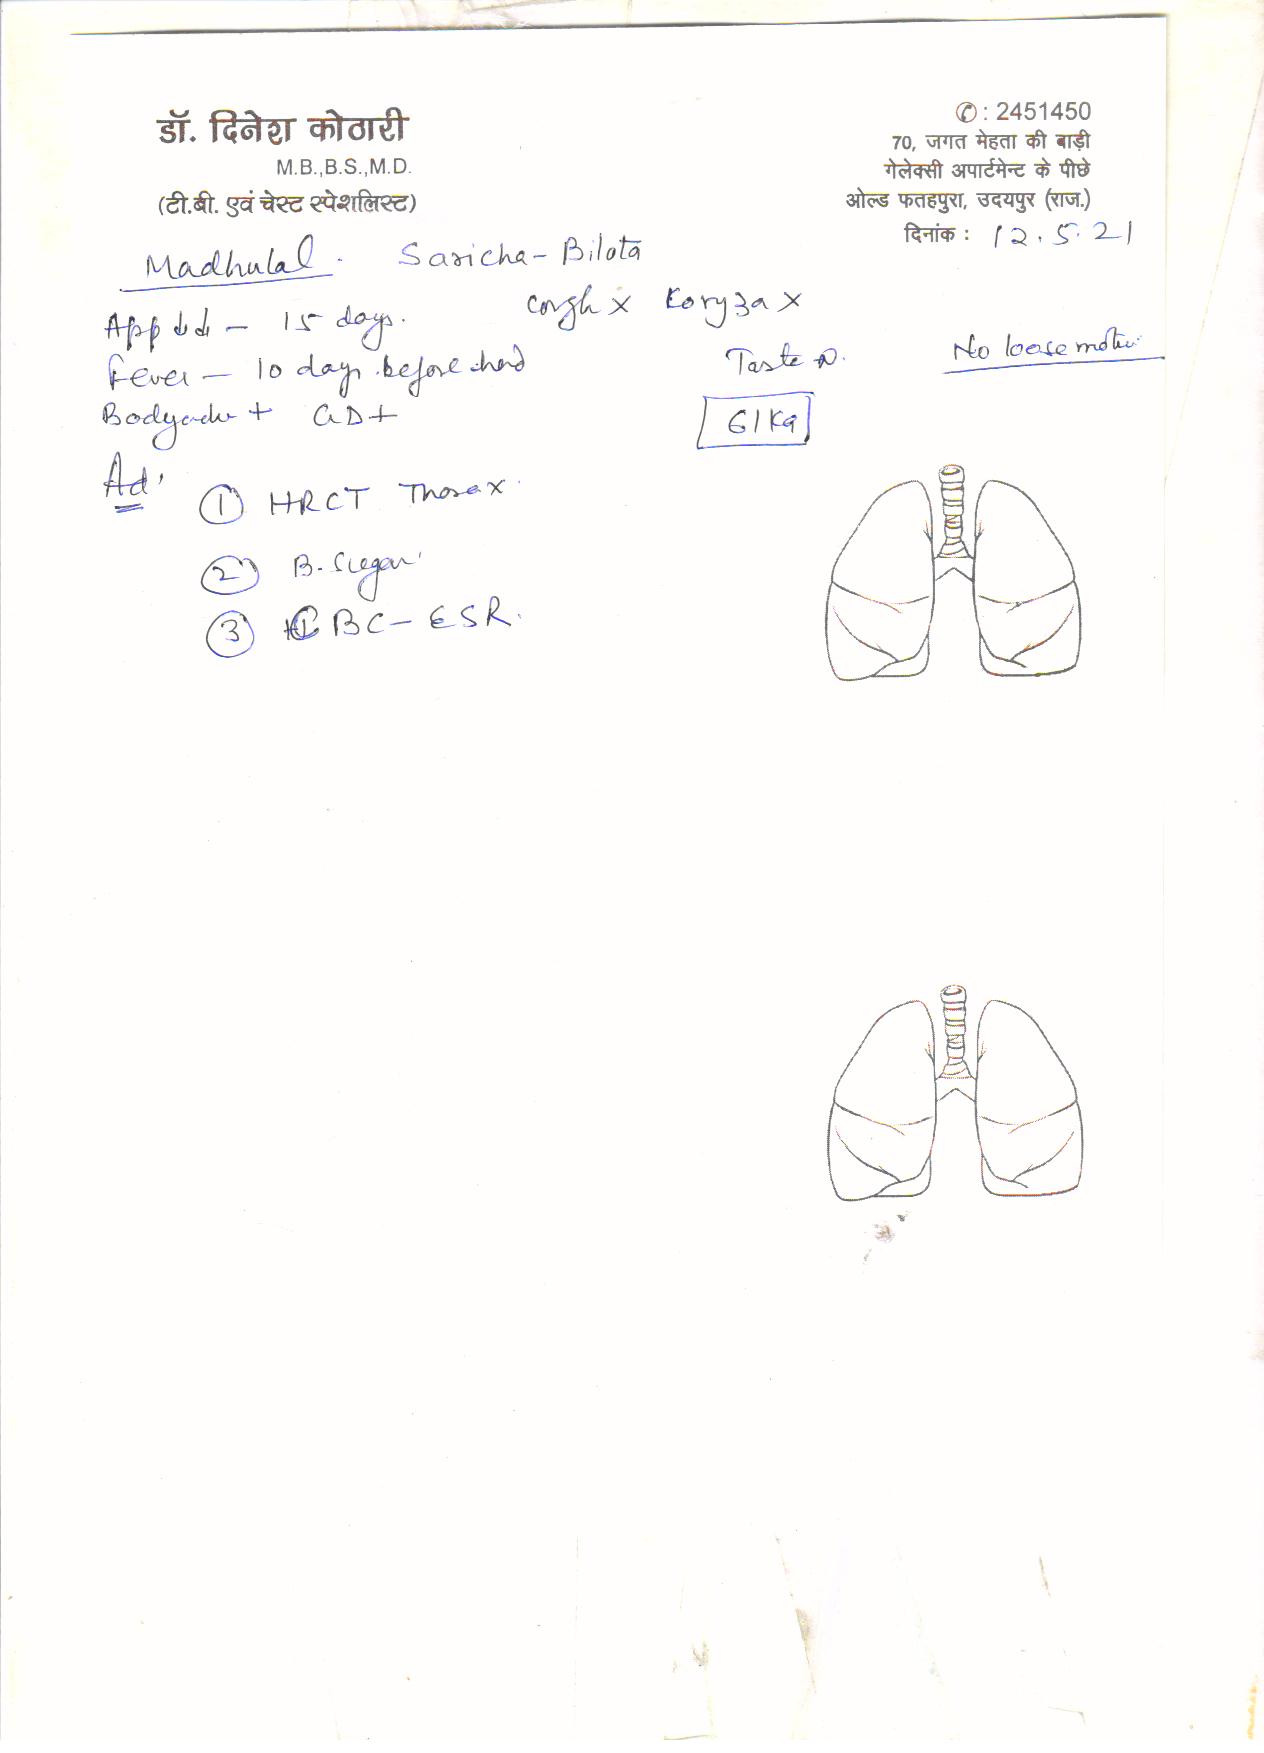 डॉ. दिनेश कोठारी
M.B.,B.S.,M.D.
(टी.बी. एवं चेस्ट स्पेशलिस्ट)
✆ : 2451450
70, जगत मेहता की बाड़ी
गेलेक्सी अपार्टमेन्ट के पीछे
ओल्ड फतहपुरा, उदयपुर (राज.)
दिनांक : 12.5.21
Madhulal. Saricha - Bilota
App ↓↓ – 15 days. Cough x Koryza x
Fever – 10 days before Taste N. No loose motion
Bodyache + GD+ 61 Kg
Ad'
① HRCT Thorax.
② B. Sugar
③ CBC – ESR.